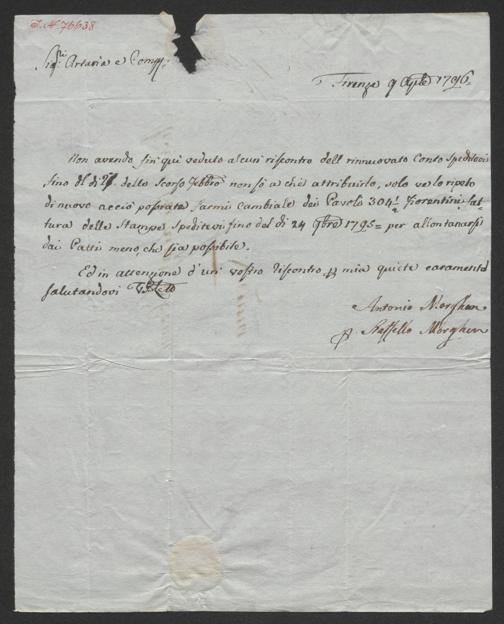 I.N. 76638
Sig.ri Artaria e Comp.
Firenze 9 Aple 1796.
Non avendo fin qui veduto alcun riscontro dell rinnuovato Conto speditovi
fino del dì dello scorso Febbro non sò a chè attribuirlo, solo ve lo ripeto
di nuovo acciò possiate farmi cambiale dei Pavoli 304.. Fiorentini fat-
tura delle Stampe speditevi fino del dì 24 9bre 1795= per allontanarsi
dai Patti meno, che sia possibile.
Ed in attenzione d'un vostro riscontro p mia quiete caramente
salutandovi
Antonio Morghen
p Raffello Morghen